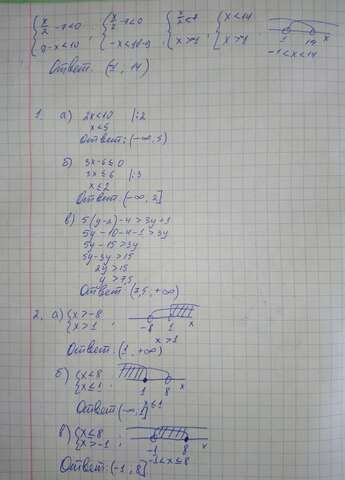 {x/2 - 7 < 0
9 - x < 10 ;
{x/2 - 7 < 0
-x < 10 - 9 ;
{x/2 < 7
x > -1 ;
{x < 14
x > -1 ;
-1 14 x
-1 < x < 14
Ответ: (-1, 14)
1. а) 2x < 10 |:2
x < 5
Ответ: (-∞, 5)
б) 3x - 6 ≤ 0
3x ≤ 6 |:3
x ≤ 2
Ответ: (-∞, 2]
в) 5(y-2) - 4 > 3y + 1
5y - 10 - 4 - 1 > 3y
5y - 15 > 3y
5y - 3y > 15
2y > 15
y > 7,5
Ответ: (7,5, +∞)
2. а) {x > -8
x > 1 ;
-8 1 x
x > 1
Ответ: (1, +∞)
б) {x < 8
x ≤ 1 ;
1 8 x
x ≤ 1
Ответ (-∞, 1]
в) {x ≤ 8
x > -1 ;
-1 8 x
-1 < x ≤ 8
Ответ: (-1, 8]